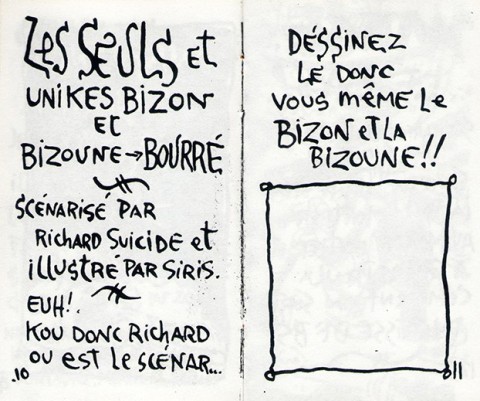 Les Seuls et
UNIKES BIZON
ET
BIZOUNE → BOURRÉ
SCÉNARISÉ PAR
RICHARD SUICIDE et
iLLUSTRÉ PAR SIRIS.
EUH!
KOU DONC RICHARD
OU EST LE SCÉNAR...
.10
DÉSSINEZ
LE DONC
VOUS MÊME LE
BIZON ET LA
BIZOUNE!!
11